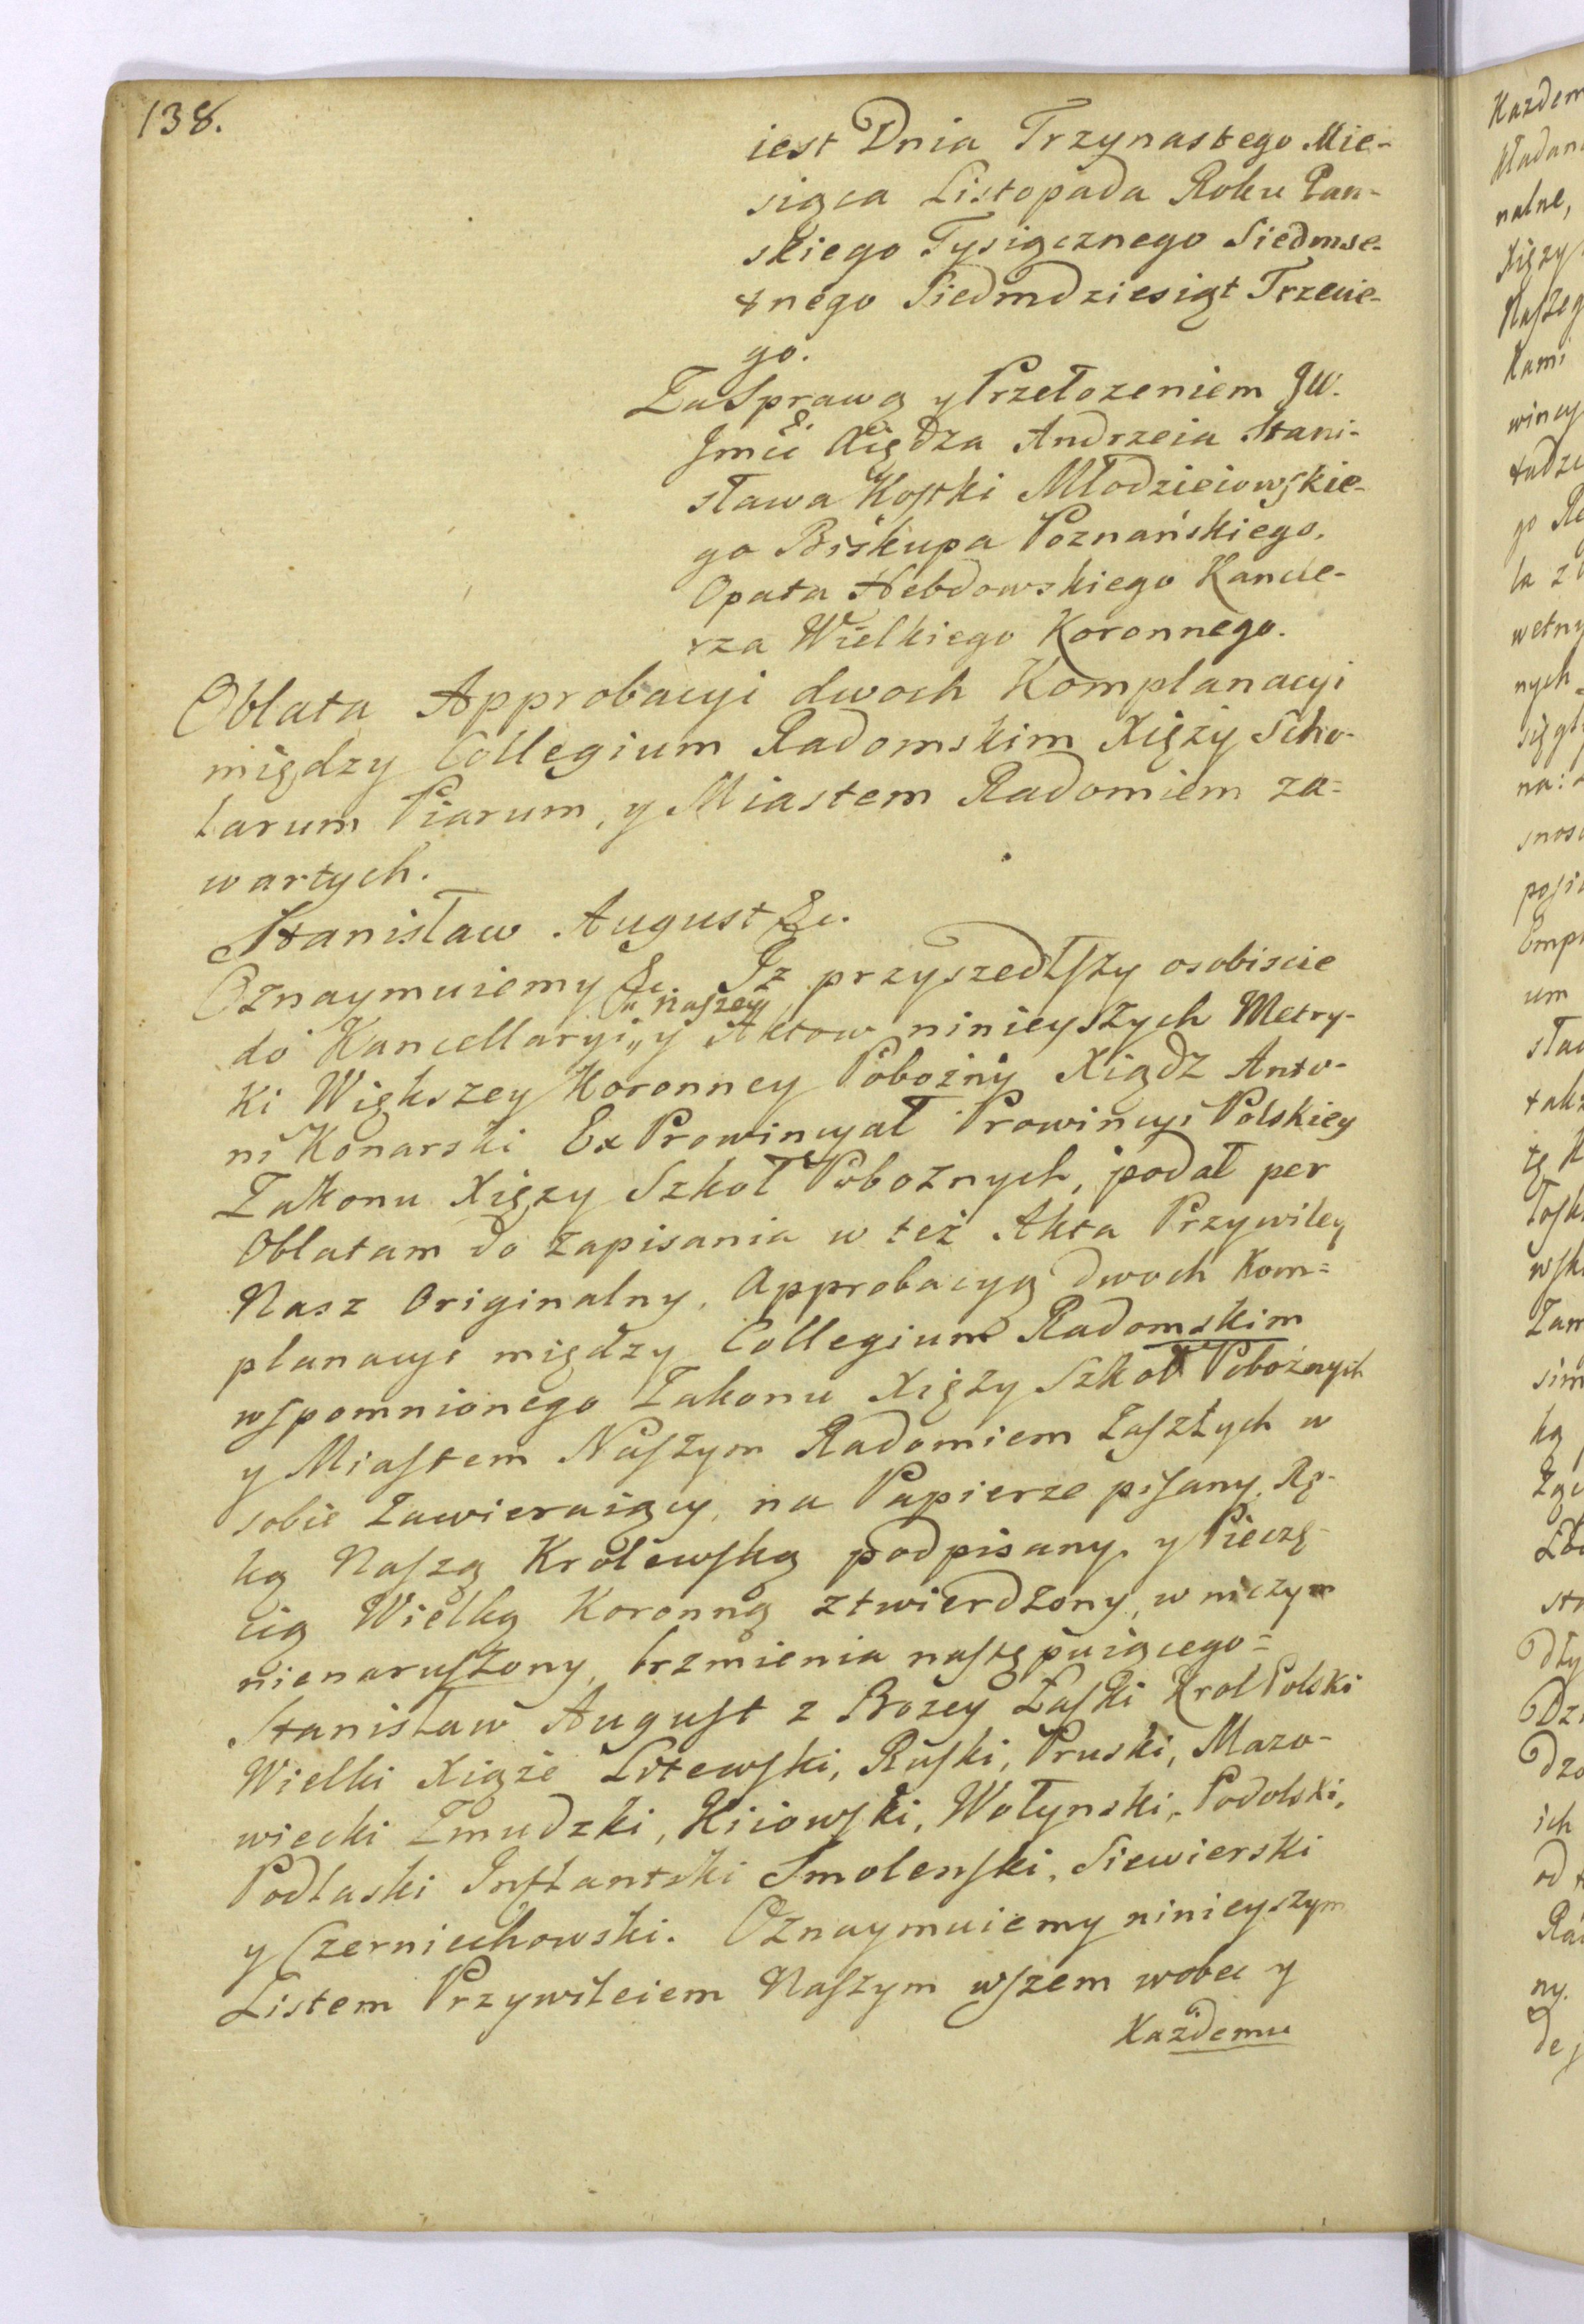 138.
iest Dnia Trzynastego Mie-
siąca Listopada Roku Pan-
skiego Tysiącznego Siedmse-
tnego Siedmdziesiąt Trzecie-
go.
Za Sprawą y Przełozeniem JW.
Jmći Xiędza Andrzeia Stani-
sława Kostki Młodzieiowskie-
go Biskupa Poznańskiego,
Opata Hebdowskiego Kancle-
rza Wielkiego Koronnego.
Oblata Approbacyi dwoch Komplanacyi
między Collegium Radomskim Xięży Scho-
larum Piarum, y Miastem Radomiem za=
wartych.
Stanisław August &c.
Oznaymuiemy &c. Iz przyszedłszy osobiscie
do Kancellaryi „Naszey„ y Aktow ninieyszych Metry-
ki Większey Koronney Pobożny Xiądz Anto-
ni Konarski Ex Prowincyał Prowincyi Polskiey
Zakonu Xięzy Szkoł Pobożnych, podał per
Oblatam do zapisania w też Akta Przywiley
Nasz Originalny, Approbacyą dwoch Kom=
planacyi między Collegium Radomskim
wspomnionego Zakonu Xięży Szkoł Pobożnych
y Miastem Naszym Radomiem Zaszłych w
sobie Zawieraiący, na Papierze pisany, Rę-
ką Naszą Krolewską podpisany, y Pieczę-
cią Wielką Koronną ztwierdzony, w niczym
nienaruszony, brzmienia następuiącego=
Stanisław August z Bozey Łaski Krol Polski
Wielki Xiąże Litewski, Ruski, Pruski, Mazo-
wiecki Zmudzki, Kiiowski, Wołynski, Podolski,
Podlaski Inflantski Smolenski, Siewierski
y Czerniechowski. Oznaymuiemy ninieyszym
Listem Przywileiem Naszym wszem wobec y
Każdemu